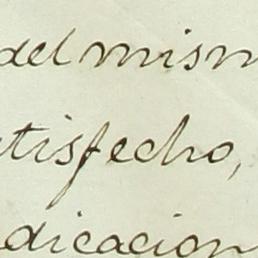 del mism
tisfecho,
dicacion